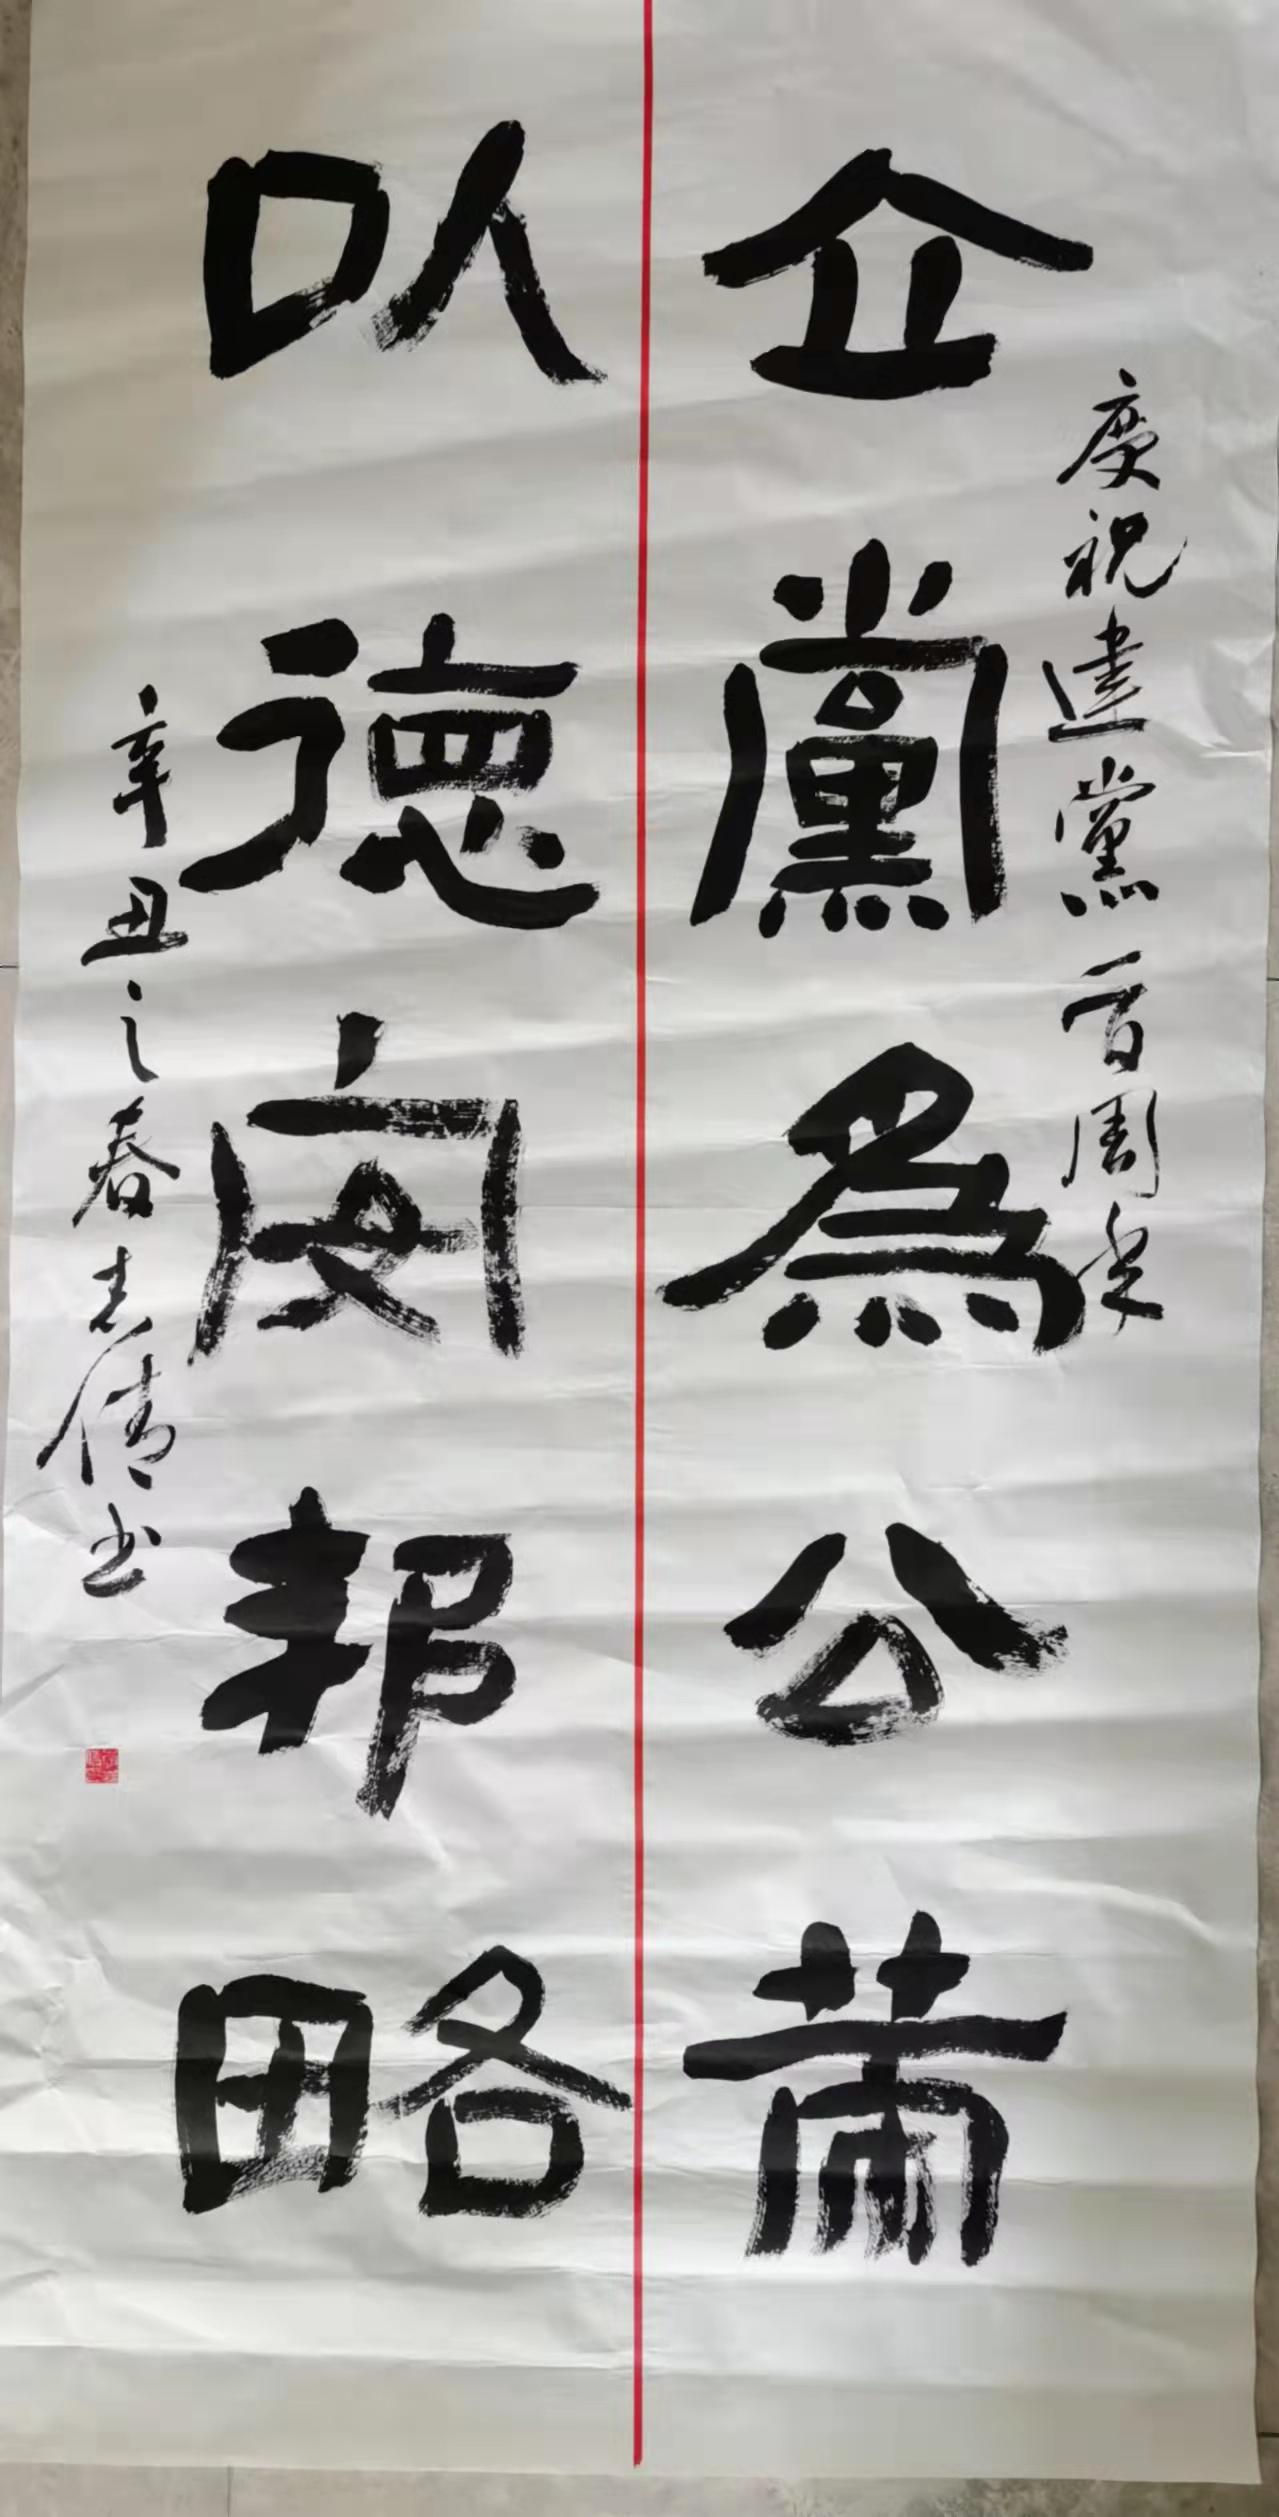 慶祝建黨百周年
立黨為公
以德安邦略
辛丑之春志倩书